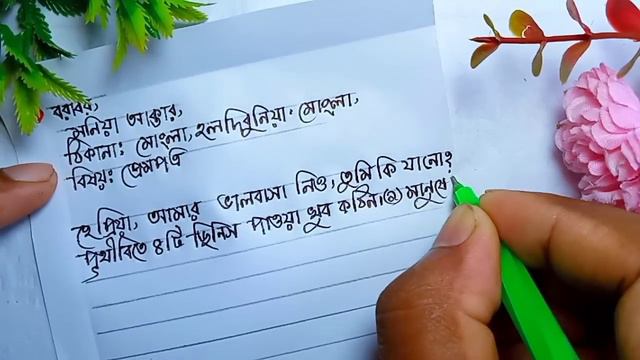 বরাবর,
মনিয়া আক্তার,
ঠিকানা: মোংলা, হলদিবুনিয়া, মোংলা,
বিষয়: প্রেমপত্র
হে প্রিয়া, আমার ভালবাসা নিও, তুমি কি যানো?
পৃথীবিতে ৪টি জিনিস পাওয়া খুব কঠিন (১) মানুষে